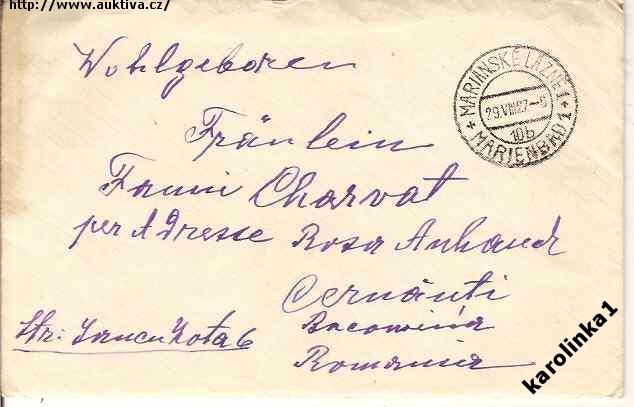 http://www.auktiva.cz/
Wohlgeboren
MARIÁNSKÉ LÁZNĚ 1
29.VIII.27-6
10b
* MARIENBAD 1 *
Fräulein
Fanni Charvat
per Adresse Rosa Anhauch
Cernăuti
Bucowina
Str: Iancu Zota 6
Romania
karolinka1